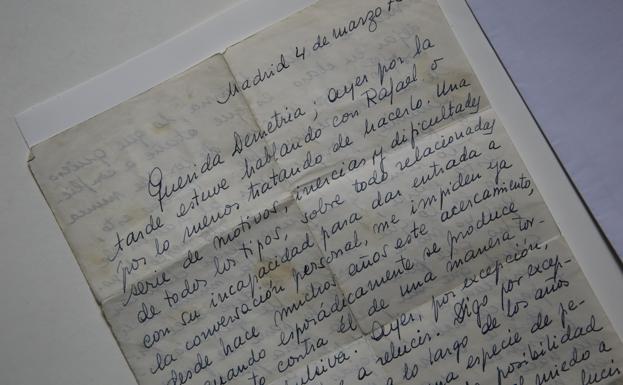 Madrid 4 de marzo
Querida Demetria; ayer por la
tarde estuve hablando con Rafael o
por lo menos tratando de hacerlo. Una
serie de motivos, inercias y dificultades
de todos los tipos, sobre todo relacionadas
con su incapacidad para dar entrada a
la conversación personal, me impiden ya
desde hace muchos años este acercamiento,
cuando esporádicamente se produce
contra él de una manera tor-
pulsiva. Ayer, por excepción,
a relucir. Digo por excep-
a lo largo de los años
una especie de pe-
posibilidad
el miedo a